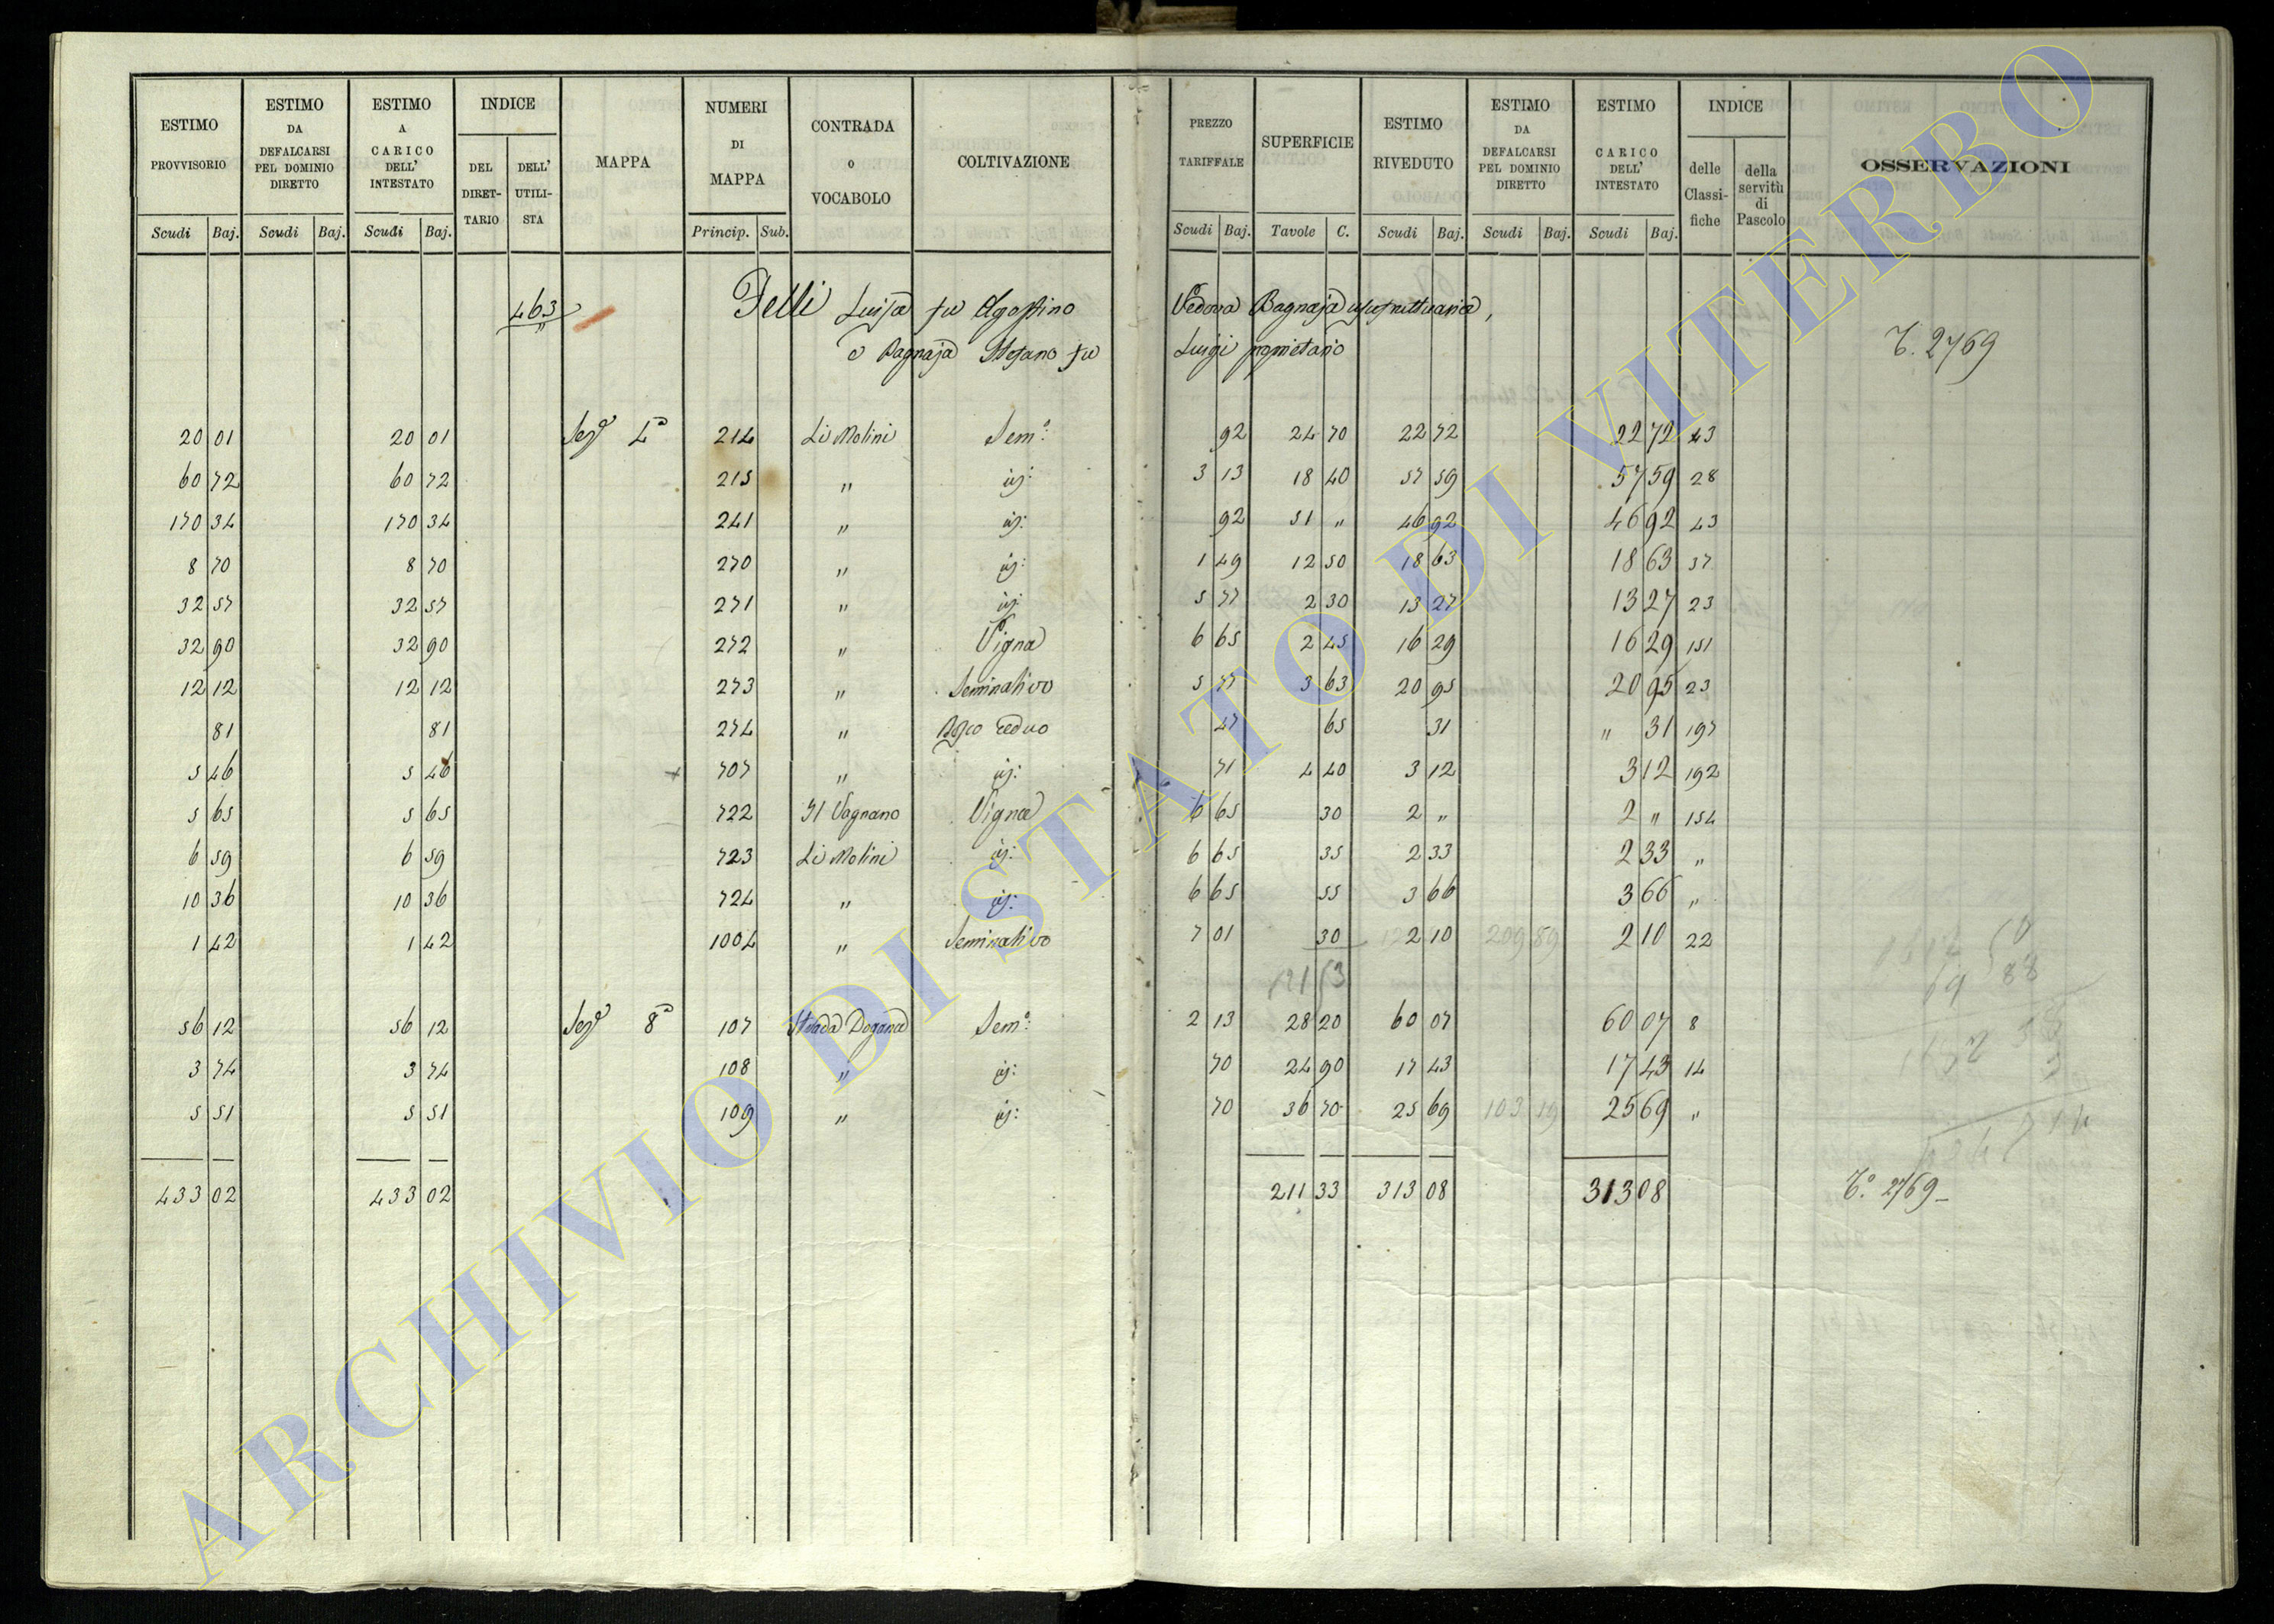 ESTIMO PROVVISORIO | ESTIMO DA DEFALCARSI PEL DOMINIO DIRETTO | ESTIMO A CARICO DELL' INTESTATO | INDICE | MAPPA | NUMERI DI MAPPA | CONTRADA o VOCABOLO | COLTIVAZIONE | PREZZO TARIFFALE | SUPERFICIE | ESTIMO RIVEDUTO | ESTIMO DA DEFALCARSI PEL DOMINIO DIRETTO | ESTIMO A CARICO DELL' INTESTATO | INDICE | OSSERVAZIONI
DEL DIRETTARIO | DELL' UTILISTA | delle Classifiche | della servitù di Pascolo
Scudi Baj. | Scudi Baj. | Scudi Baj. | Princip. Sub. | Scudi Baj. | Tavole C. | Scudi Baj. | Scudi Baj. | Scudi Baj.
463 Felli Luisa fu Agostino Vedova Bagnaja usufruttuaria,
e Bagnaja Stefano fu Luigi proprietario T. 2769
20 01 | 20 01 | Sez.e 4a | 214 | Li Molini | Sem.o | 92 | 24 70 | 22 72 | 22 72 | 43
60 72 | 60 72 | 215 | " | id: | 3 13 | 18 40 | 57 59 | 57 59 | 28
170 34 | 170 34 | 241 | " | id: | 92 | 51 " | 46 92 | 46 92 | 43
8 70 | 8 70 | 270 | " | id: | 1 49 | 12 50 | 18 63 | 18 63 | 37
32 57 | 32 57 | 271 | " | id: | 5 77 | 2 30 | 13 27 | 13 27 | 23
32 90 | 32 90 | 272 | " | Vigna | 6 65 | 2 45 | 16 29 | 16 29 | 151
12 12 | 12 12 | 273 | " | Seminativo | 5 77 | 3 63 | 20 95 | 20 95 | 23
81 | 81 | 274 | " | Bosco ceduo | 47 | 65 | 31 | " 31 | 197
5 46 | 5 46 | 707 | " | id: | 71 | 4 40 | 3 12 | 3 12 | 192
5 65 | 5 65 | 722 | Il Vagnano | Vigna | 6 65 | 30 | 2 " | 2 " | 154
6 59 | 6 59 | 723 | Li Molini | id: | 6 65 | 35 | 2 33 | 2 33 | "
10 36 | 10 36 | 724 | " | id: | 6 65 | 55 | 3 66 | 3 66 | "
1 42 | 1 42 | 1004 | " | Seminativo | 7 01 | 30 | 2 10 | 209 89 | 2 10 | 22
121 53
56 12 | 56 12 | Sez.e 8a | 107 | Strada Dogana | Sem.o | 2 13 | 28 20 | 60 07 | 60 07 | 8
3 74 | 3 74 | 108 | " | id: | 70 | 24 90 | 17 43 | 17 43 | 14
5 51 | 5 51 | 109 | " | id: | 70 | 36 70 | 25 69 | 103 19 | 25 69 | "
433 02 | 433 02 | 211 33 | 313 08 | 313 08 | T.o 2769
ARCHIVIO DI STATO DI VITERBO